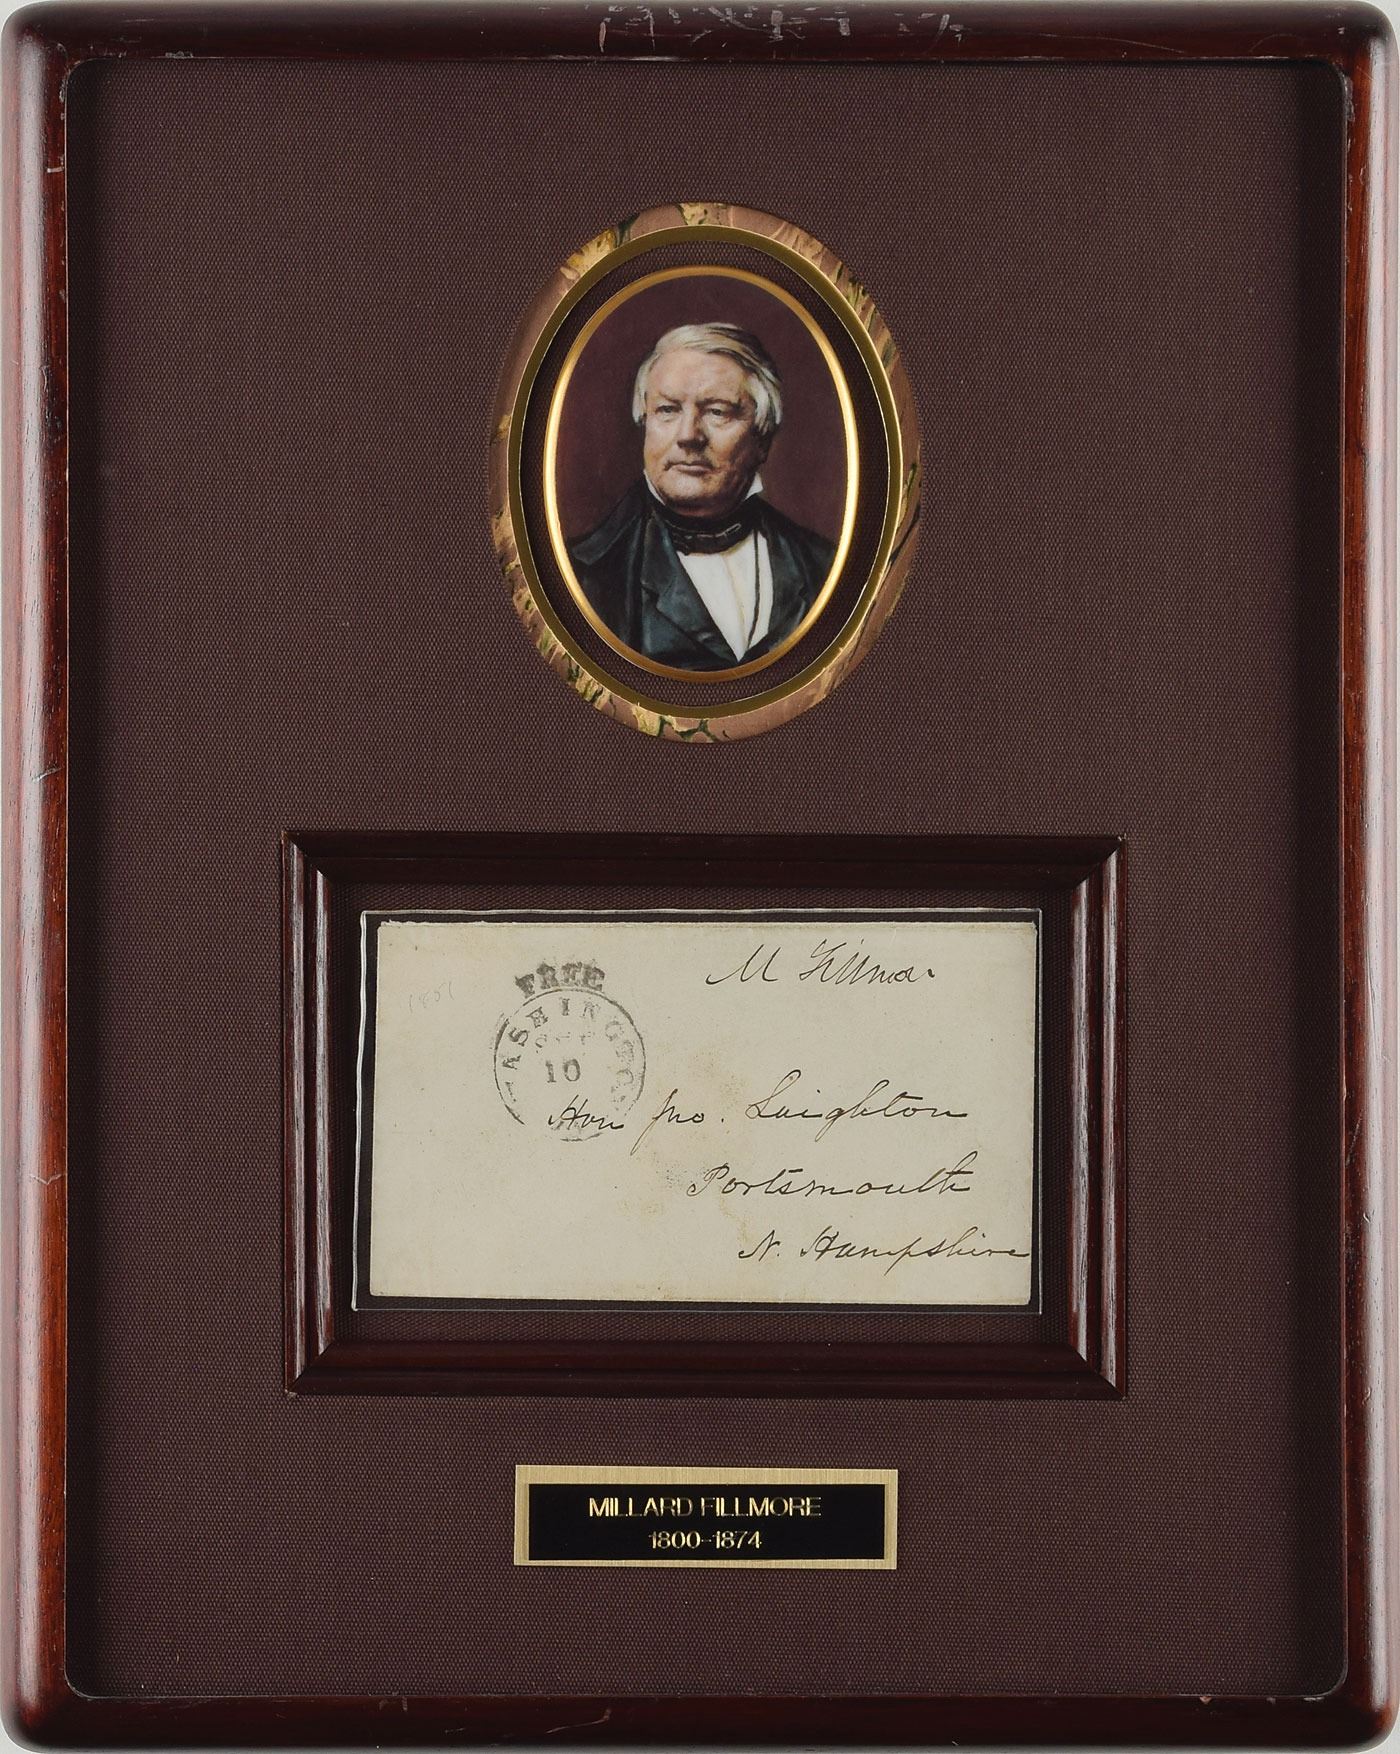 M Fillmore
1851
FREE
WASHINGTON
10
Hon Jno. Leighton
Portsmouth
N. Hampshire
MILLARD FILLMORE
1800-1874